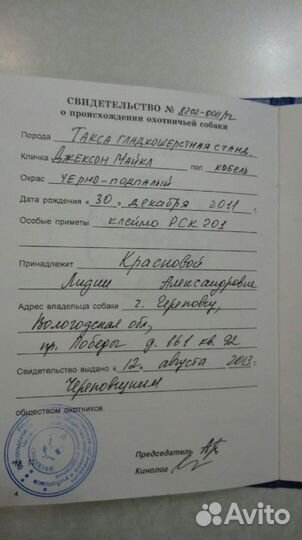 СВИДЕТЕЛЬСТВО № 8202-0011/12
о происхождении охотничьей собаки
Порода Такса гладкошерстная станд.
Кличка Джексон Майкл пол кобель
Окрас черно-подпалый
Дата рождения «30» декабря 2011 г.
Особые приметы клеймо РСК 201
Принадлежит Красновой
Лидии Александровне
Адрес владельца собаки г. Череповец,
Вологодская обл,
пр. Победы д. 161 кв. 92
Свидетельство выдано «12» августа 2013 г.
Череповецким
обществом охотников
Председатель
Кинолог
4
Avito